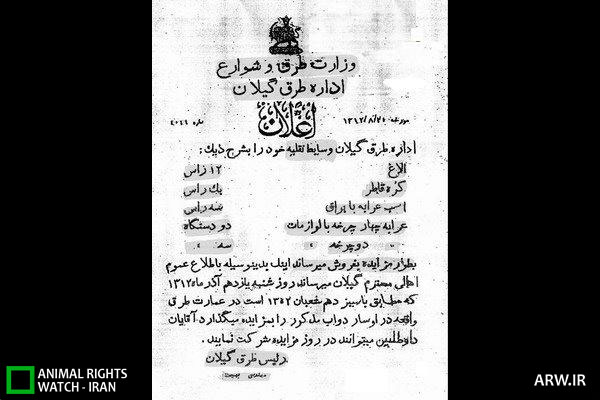 وزارت طرق و شوارع
اداره طرق گیلان
اعلان
مورخه ۱۳۱۲/۸/۲۰
نمره ۴۰۴۴
اداره طرق گیلان وسایط نقلیه خود را بشرح ذیل:
الاغ ۱۲ راس
کره قاطر یک راس
اسب عرابه با یراق سه راس
عرابه چهار چرخه با لوازمات دو دستگاه
" دو چرخه " سه "
بطور مزایده بفروش میرساند اینک بدینوسیله باطلاع عموم
اهالی محترم گیلان میرساند روز شنبه یازدهم آذر ماه ۱۳۱۲
که مطابق با سیزدهم شعبان ۱۳۵۲ است در عمارت طرق
واقعه در اوسار دواب مذکور را بمزایده میگذارد آقایان
داوطلبین میتوانند در روز مزایده شرکت نمایند.
رئیس طرق گیلان
ANIMAL RIGHTS
WATCH - IRAN
ARW.IR